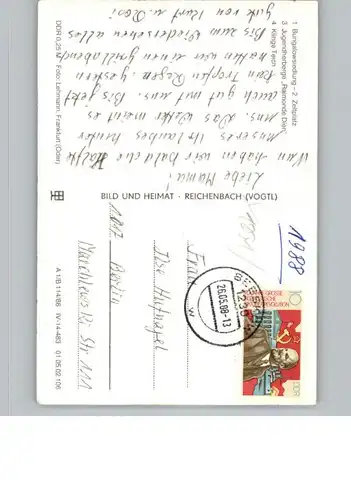 1 Bungalowsiedlung – 2 Zeltplatz
3 Jugendherberge „Raimonde Dien"
4 Klinge Teich
DDR 0,25 M · Foto: Lehmann, Frankfurt (Oder)
Liebe Mama!
Nun haben wir bald die Hälfte
unseres Urlaubes hinter
uns. Das Wetter meint es
auch gut mit uns. Bis jetzt
kein Tropfen Regen. gestern
hatten wir einen grillabend
Bis zum Wiedersehen alles
gute von Kurt u. Rosi
BILD UND HEIMAT · REICHENBACH (VOGTL)
A 1/B 114/86 IV-14-483 01 05 02 106
1988
26.05.88-13
1236
w
10
DDR
Frau
Ilse Hufnagel
Marchlewski Str 111
Berlin
1017